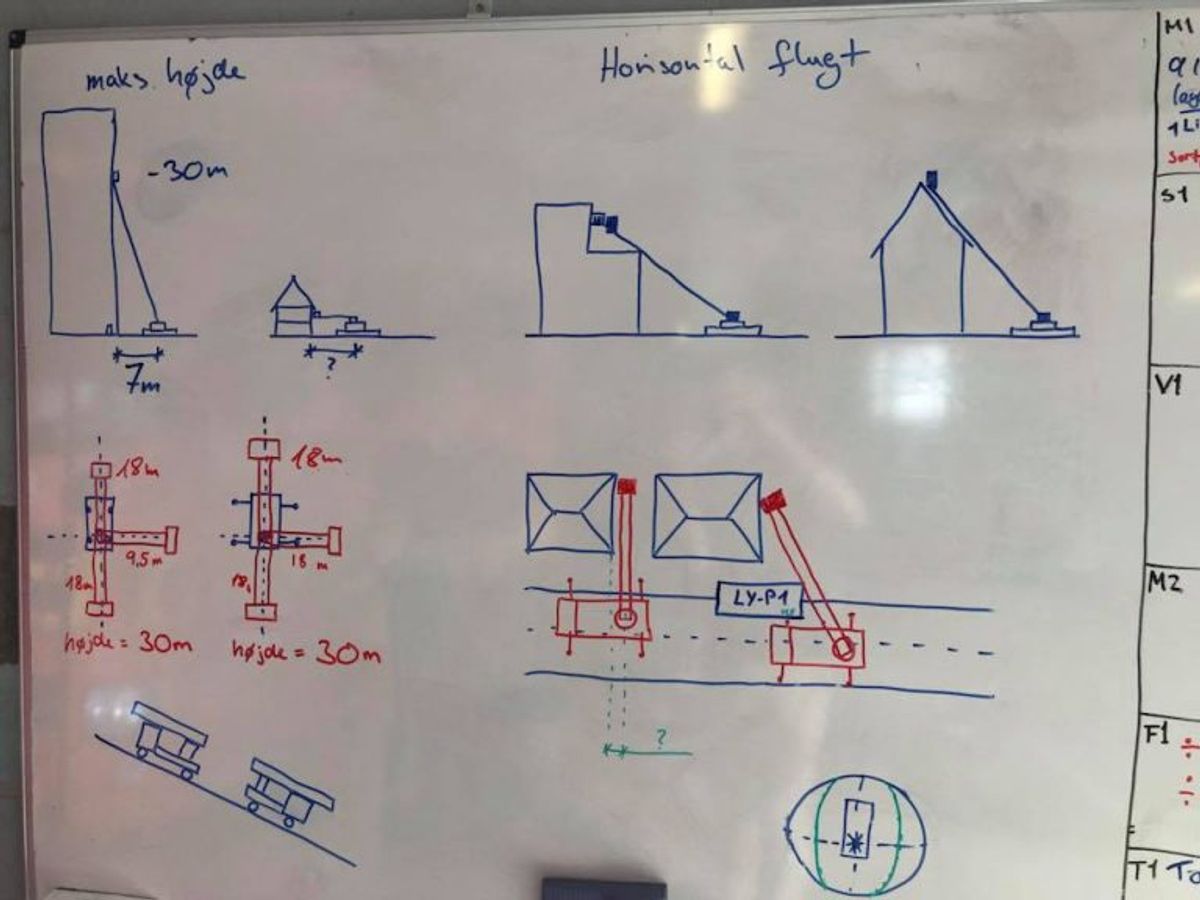 maks. højde
Horisontal flugt
-30m
7m
?
18m
9,5 m
18m
højde = 30m
18m
18 m
18,
højde = 30m
LY-P1
?
M1
S1
V1
M2
F1
T1